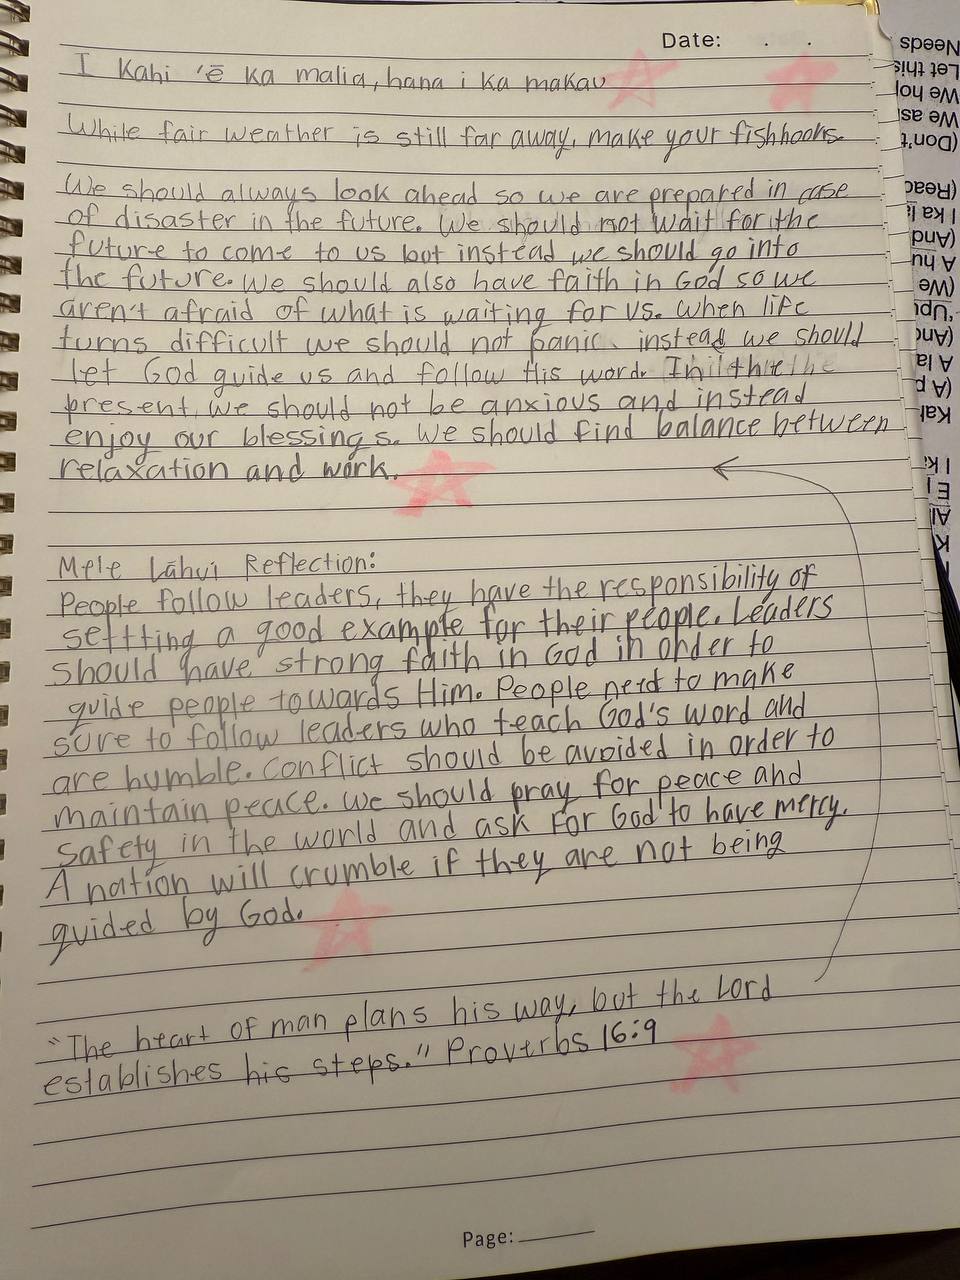 Date: . .
I Kahi 'ē ka malia, hana i ka makau
While fair weather is still far away, make your fishhooks.
We should always look ahead so we are prepared in case
of disaster in the future. We should not wait for the
future to come to us but instead we should go into
the future. We should also have faith in God so we
aren't afraid of what is waiting for us. When life
turns difficult we should not panic instead we should
let God guide us and follow His word. In the
present, we should not be anxious and instead
enjoy our blessings. We should find balance between
relaxation and work.
Mele Lāhui Reflection:
People follow leaders, they have the responsibility of
settting a good example for their people. Leaders
should have strong faith in God in order to
guide people towards Him. People need to make
sure to follow leaders who teach God's word and
are humble. Conflict should be avoided in order to
maintain peace. We should pray for peace and
safety in the world and ask for God to have mercy.
A nation will crumble if they are not being
guided by God.
"The heart of man plans his way, but the Lord
establishes his steps." Proverbs 16:9
Page:
Needs
Let this
We hop
We as
(Don't
(Reac
I ka la
(And
A hu
(We
'Upu
(And
A la
(A p
Kah
I ki
E I
Al
K